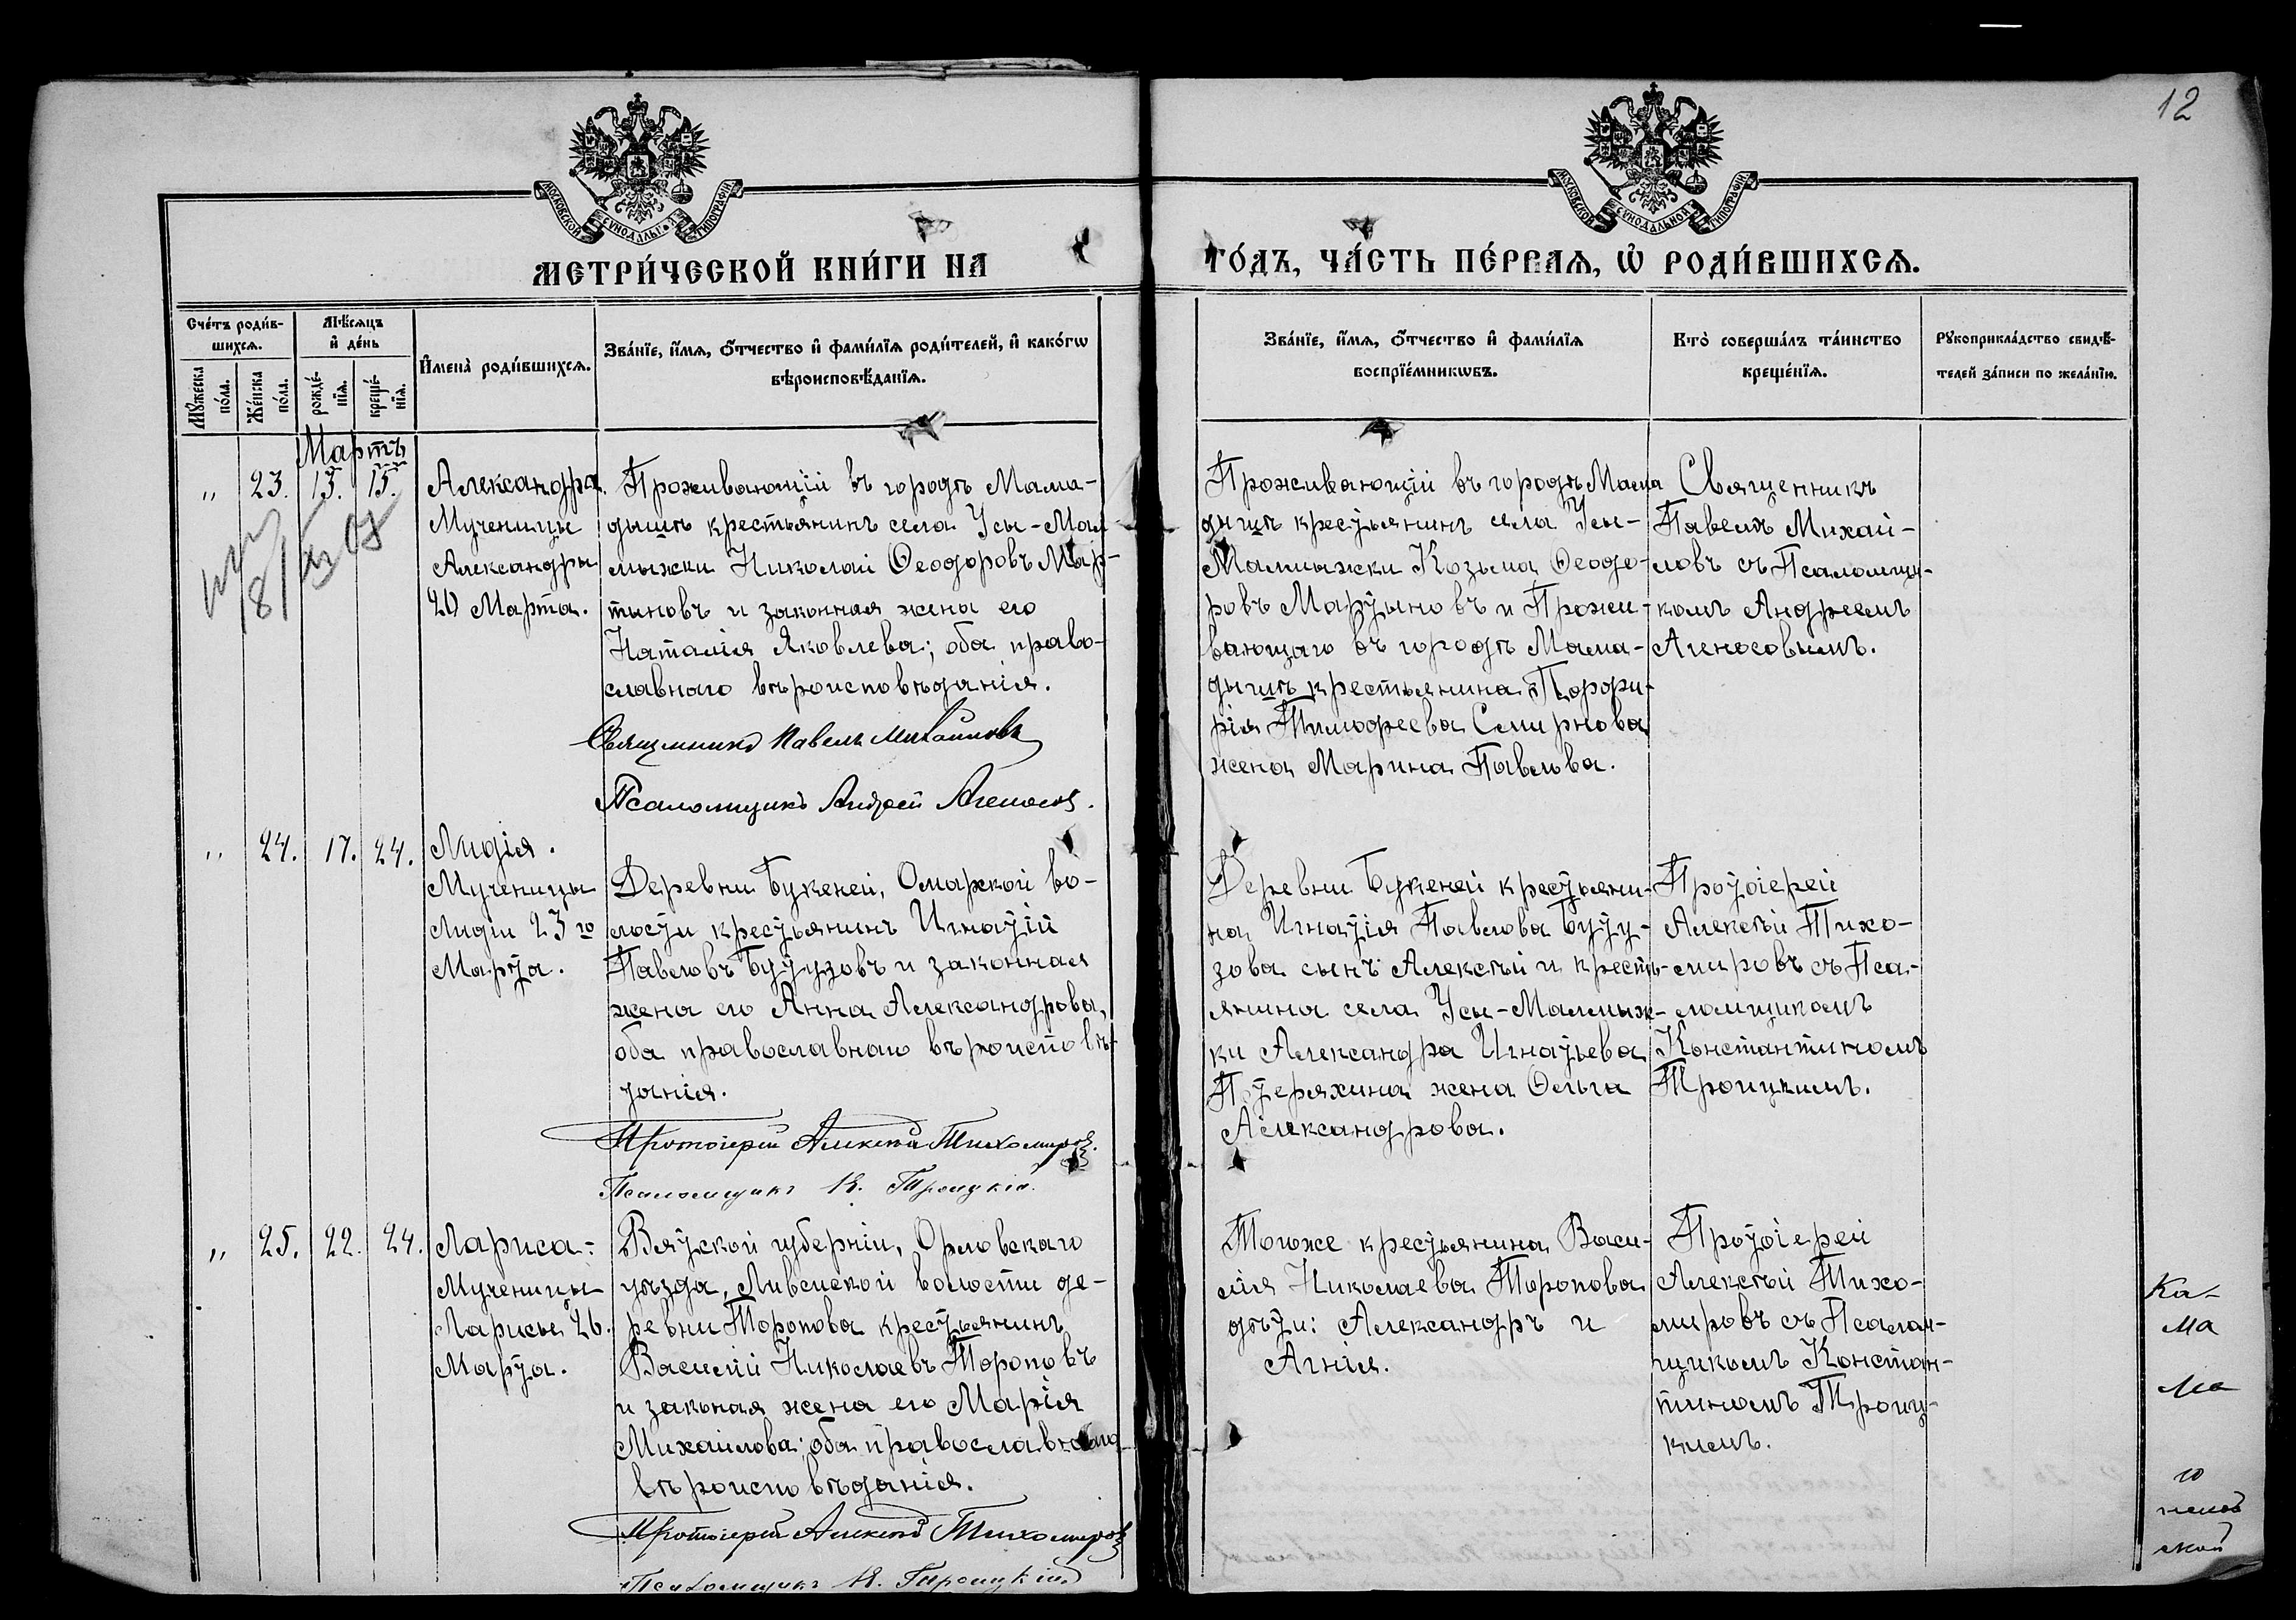 12
МОСКОВСКОЙ СѴНОДАЛЬНОЙ ТИПОГРАФІИ
МОСКОВСКОЙ СѴНОДАЛЬНОЙ ТИПОГРАФІИ
МЕТРИ́ЧЕСКОЙ КНИ́ГИ НА
ГО́ДЪ, ЧА́СТЬ ПЕ́РВАЯ, Ѡ҆ РОДИ́ВШИХСЯ.
Сче́тъ роди́в-
шихся.
Мꙋ́жеска по́ла.
Же́нска по́ла.
Мѣ́сяцъ
и҆ де́нь
рожде́-
нїя.
креще́-
нїя.
И҆мена̀ роди́вшихся.
Зва́нїе, и҆́мя, ѻ҆́тчество и҆ фами́лїя роди́телей, и҆ како́гѡ
вѣроисповѣ́данїя.
Зва́нїе, и҆́мя, ѻ҆́тчество и҆ фами́лїя
воспрїе́мникѡвъ.
Кто̀ соверша́лъ та́инство
креще́нїя.
Рꙋкоприкла́дство свидѣ́-
телей за́писи по жела́нїю.
Мартъ
„ 23. 13. 15.
Александра.
Мученицы
Александры
20 Марта.
Проживающій въ городѣ Мама-
дышѣ крестьянинъ села Усы-Мал
мыжки Николай Ѳеодоровъ Мар-
тиновъ и законная жена его
Наталія Яковлева; оба право-
славнаго вѣроисповѣданія.
Священникъ Павелъ Михайловъ
Псаломщикъ Андрей Агеносовъ.
Проживающій въ городѣ Мама
дышѣ крестьянинъ села Усы-
Малмыжки Козьма Ѳеодо-
ровъ Мартыновъ и Прожи-
вающаго въ городѣ Мама-
дышѣ крестьянина Порфи-
рія Тимофеева Смирнова
жена Марина Павлова.
Священникъ
Павелъ Михай-
ловъ съ Псаломщи-
комъ Андреемъ
Агеносовымъ.
„ 24. 17. 24.
Лидія.
Мученицы
Лидіи 23го
Марта.
Деревни Букеней, Омарской во-
лости крестьянинъ Игнатій
Павловъ Бутузовъ и законная
жена его Анна Александрова,
оба православнаго вѣроисповѣ-
данія.
Протоіерей Алексѣй Тихомировъ.
Псаломщикъ К. Троицкій.
Деревни Букеней крестьяни-
на Игнатія Павлова Буту-
зова сынъ Алексѣй и кресть-
янина села Усы-Малмыж-
ки Александра Игнатьева
Потеряхина жена Ольга
Александрова.
Протоіерей
Алексѣй Тихо-
мировъ съ Пса-
ломщикомъ
Константиномъ
Троицкимъ.
„ 25. 22. 24.
Лариса:
Мученицы
Ларисы 26.
Марта.
Вятской губерніи, Орловскаго
уѣзда, Ливенской волости де-
ревни Торопова крестьянинъ
Василій Николаевъ Тороповъ
и законая жена его Марія
Михаилова; оба православнаго
вѣроисповѣданія.
Протоіерей Алексѣй Тихомировъ
Псаломщикъ К. Троицкій
Тогоже крестьянина Васи-
лія Николаева Торопова
дѣти: Александръ и
Агнія.
Протоіерей
Алексѣй Тихо-
мировъ съ Псалом-
щикомъ Констан-
тиномъ Троиц-
кимъ.
Ка-
ма